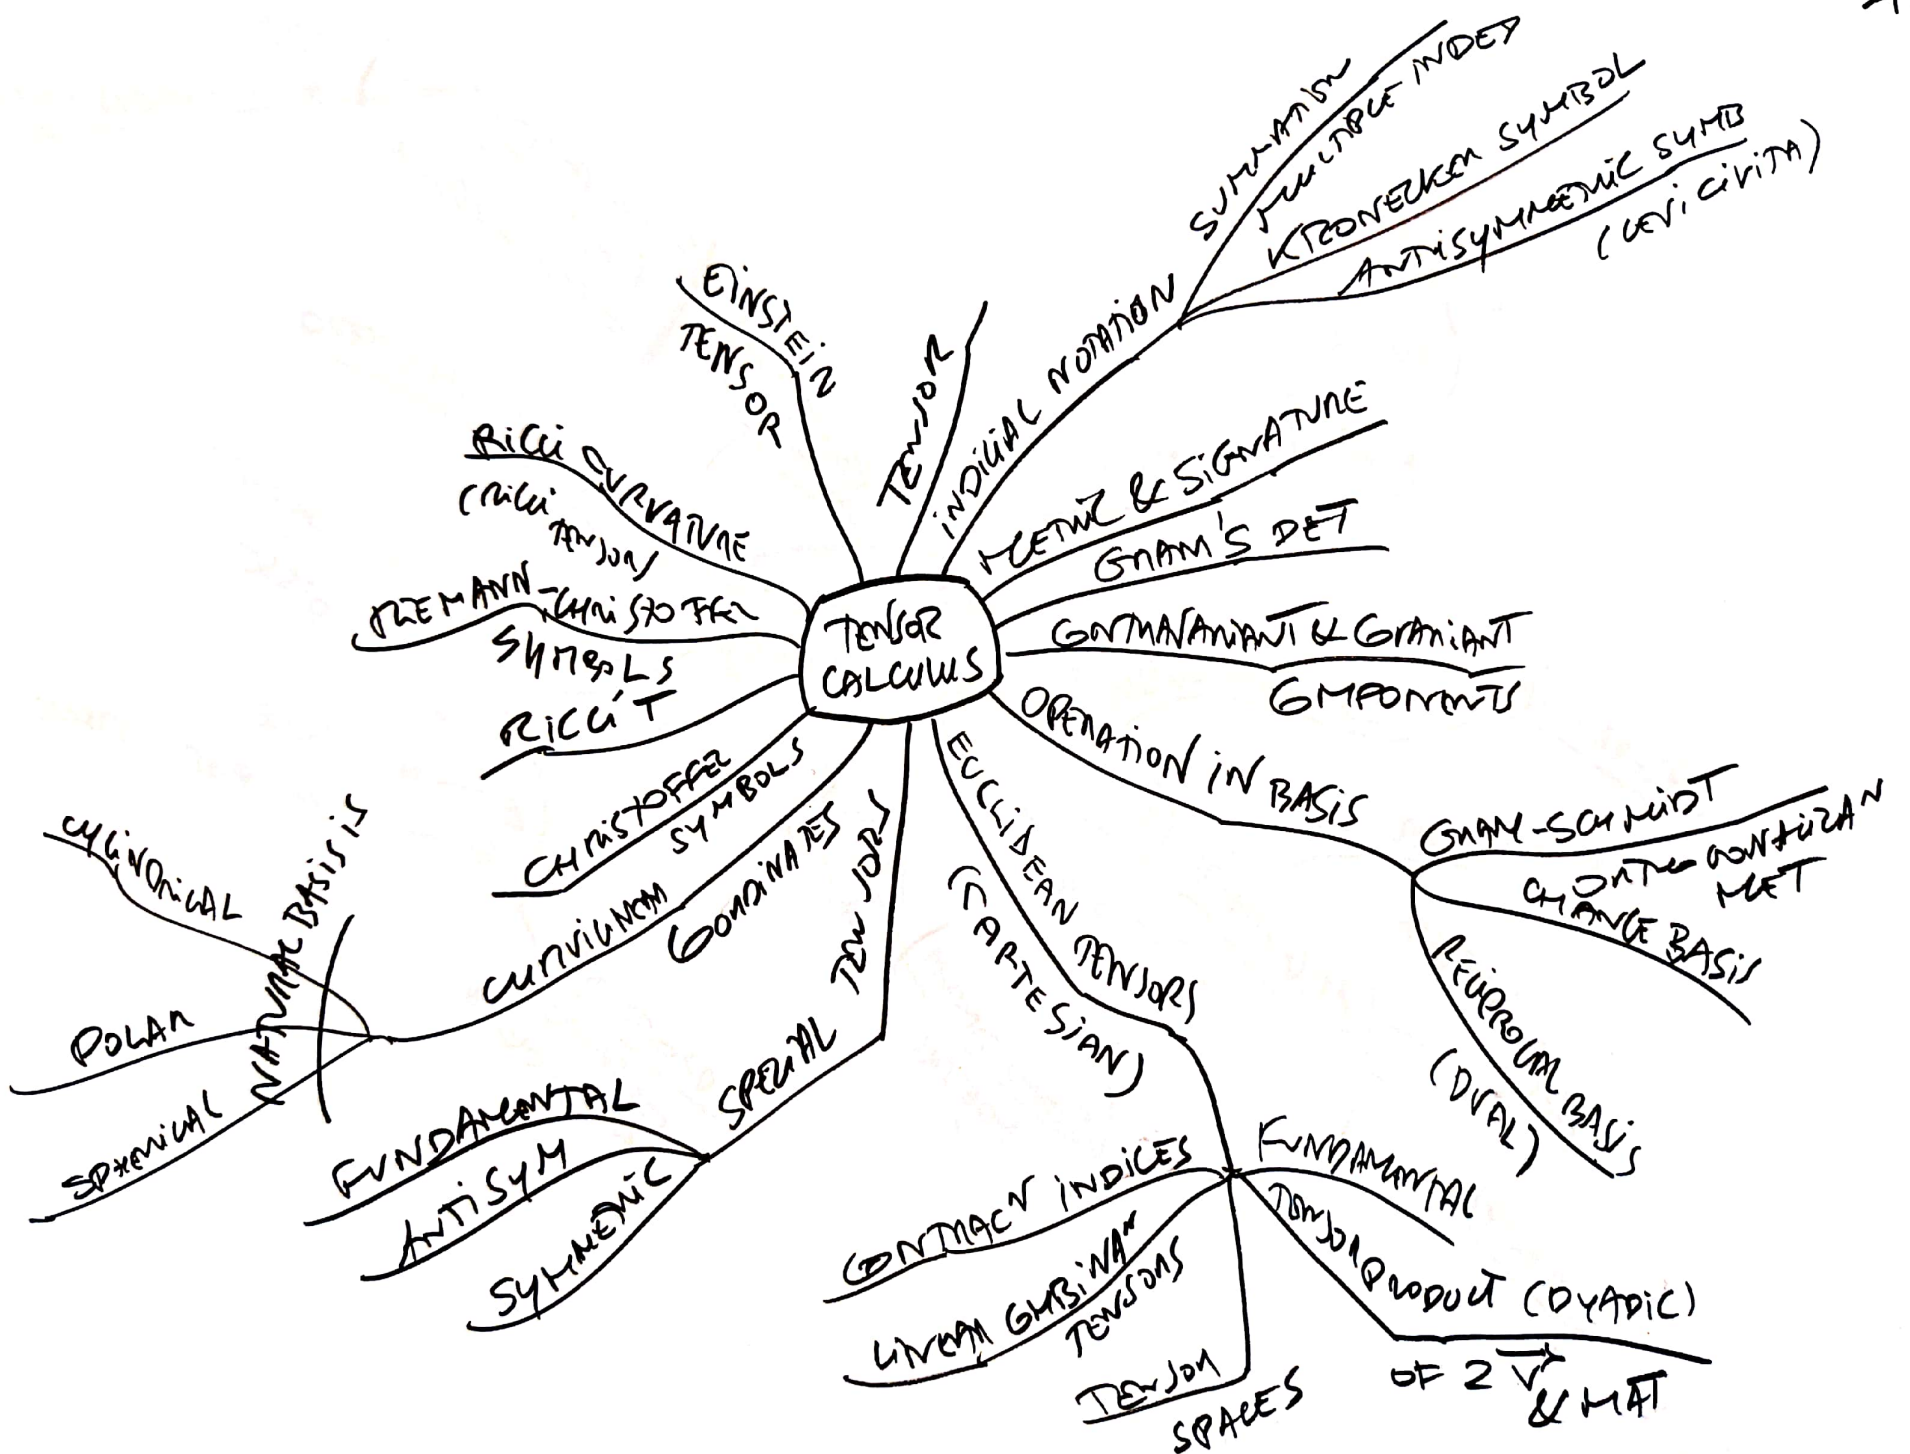 TENSOR
CALCULUS
TENSOR
INDICIAL NOTATION
SUMMATION
MULTIPLE INDEX
KRONECKER SYMBOL
ANTISYMMETRIC SYMB
(LEVI CIVITA)
METRIC & SIGNATURE
GRAM'S DET
CONTRAVARIANT & COVARIANT
COMPONENTS
OPERATION IN BASIS
GRAM-SCHMIDT
MET
CHANGE BASIS
RECIPROCAL BASIS
(DUAL)
EUCLIDEAN TENSORS
(CARTESIAN)
FUNDAMENTAL
TENSOR PRODUCT (DYADIC)
OF 2 V
& MAT
TENSOR
SPACES
LINEAR COMBINAN
TENSORS
CONTRACN INDICES
SPECIAL TENSORS
FUNDAMENTAL
ANTISYM
SYMMETRIC
CURVILINEAR
COORDINATES
NATURAL BASISIS
CYLINDRICAL
POLAR
SPHERICAL
CHRISTOFFEL
SYMBOLS
RICCI T
RIEMANN-CHRISTOFFEL
SYMBOLS
RICCI CURVATURE
(RICCI
TENSORS
EINSTEIN
TENSOR